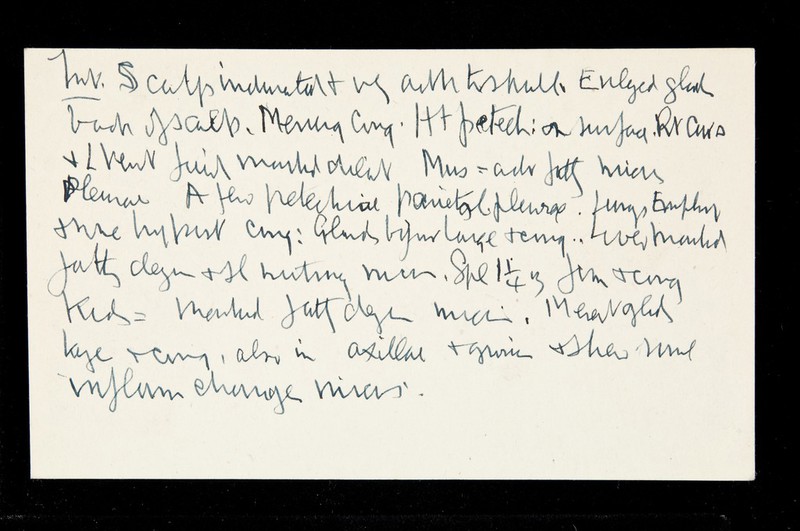 Int. Scalp indurated + very adh to skull. Enlged glds
back of scalp. Mening Cong. Ht petech: on surface. Rt Curs
+ L Vent fairly marked dilat Mus = adv fatty micro
Pleurae A few petechiae parietal pleurae. Lungs Emphy
+ some hypost cong: Glands bifur large + cong.. Liver marked
fatty degen + sl nutmeg micro. Spl 1¼ oz firm + cong
Kids = Marked fatty degen micro. Mesent glds
large + cong, also in axillae + groin + show some
inflam change micros.